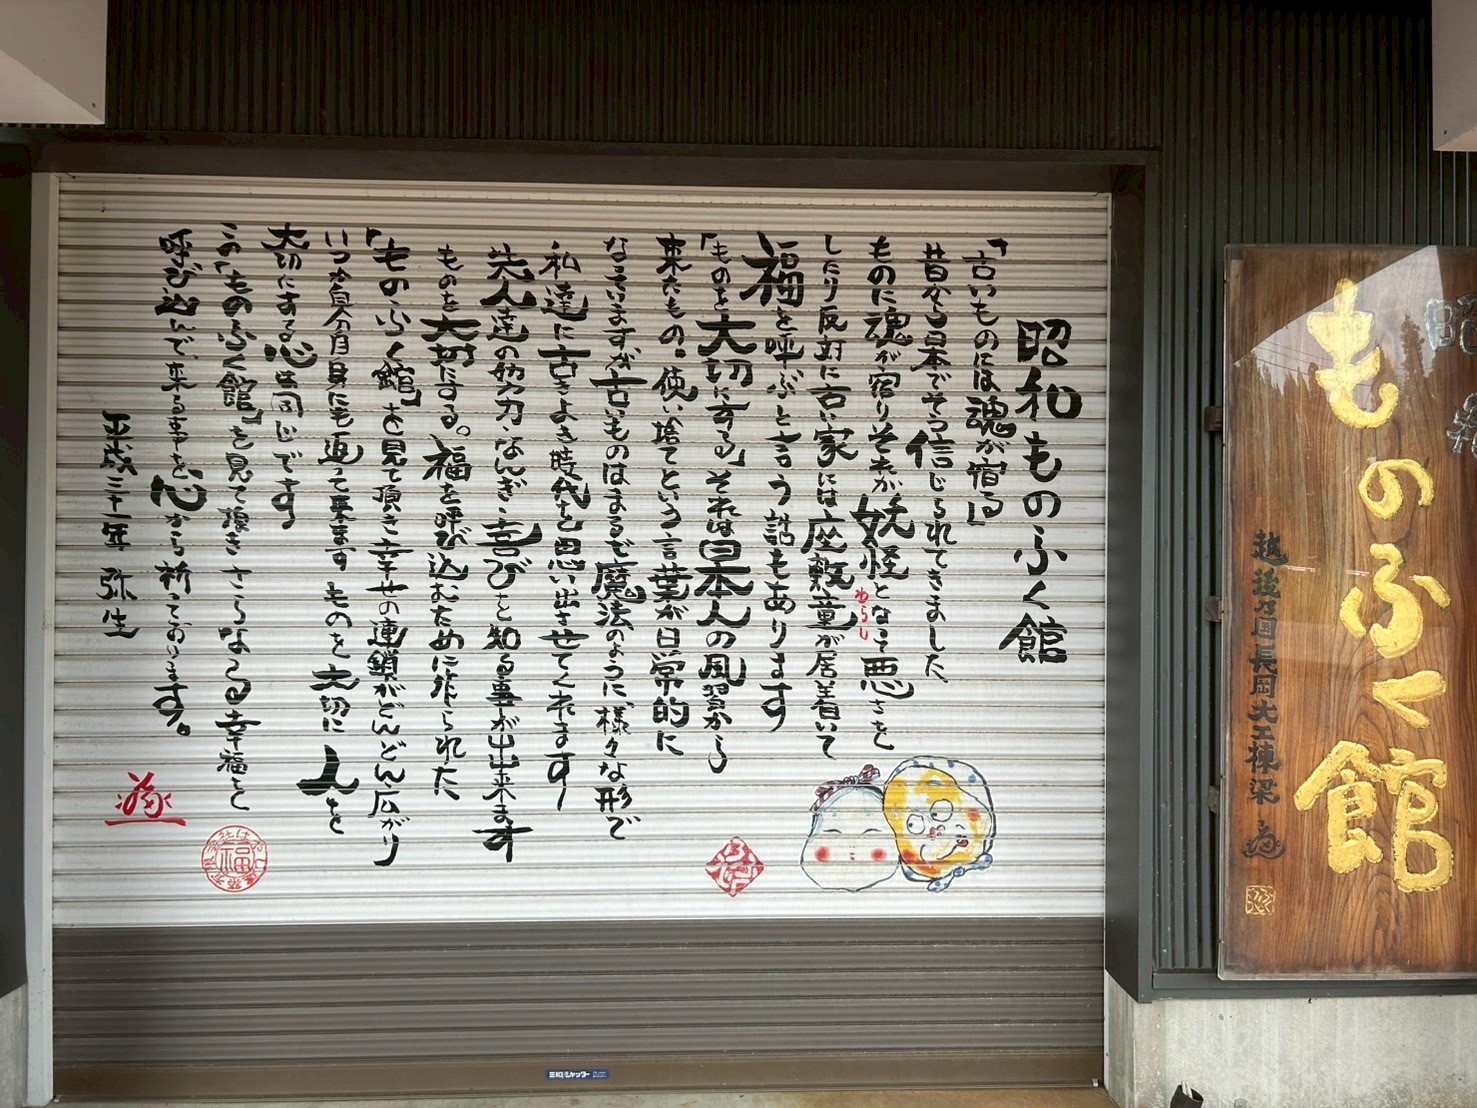 昭和ものふく館
「古いものには魂が宿る」
昔から日本でそう信じられてきました
ものに魂が宿りそれが妖怪となって悪さを
したり反対に古い家には座敷童が居着いて
わらし
福を呼ぶと言う話もあります
「ものを大切にする」それは日本人の風習から
来たもの。使い捨てという言葉が日常的に
なっていますが古いものはまるで魔法のように、様々な形で
私達に古きよき時代を思い出させてくれます
先人達の努力、なんぎ、喜びを知る事が出来ます
ものを大切にする。福を呼び込むために作られた
「ものふく館」を見て頂き幸せの連鎖がどんどん広がり
いつか自分自身にも返って来ます ものを大切に人を
大切にする心は同じです
この「ものふく館」を見て頂き さらなる幸福を
呼び込んで、来る事を心から祈っております。
平成三十一年 弥生
福
昭
ものふく館
越後乃国長岡大工棟梁
三和シャッター